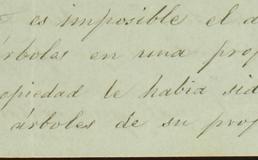 es imposible el a
rboles en una prop
opiedad le habia sid
árboles de su prop